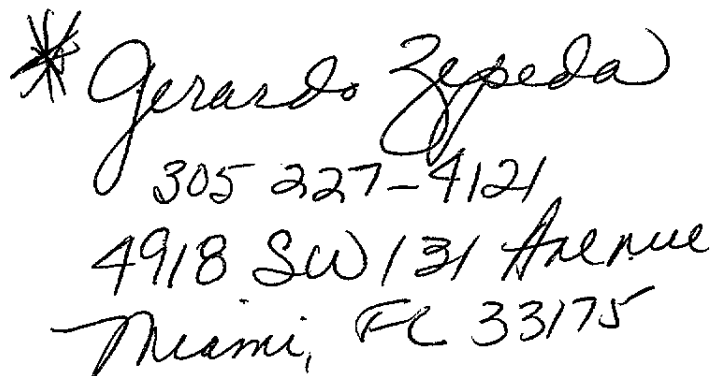 * Gerardo Zepeda
305 227-4121
4918 SW 131 Avenue
Miami, FL 33175